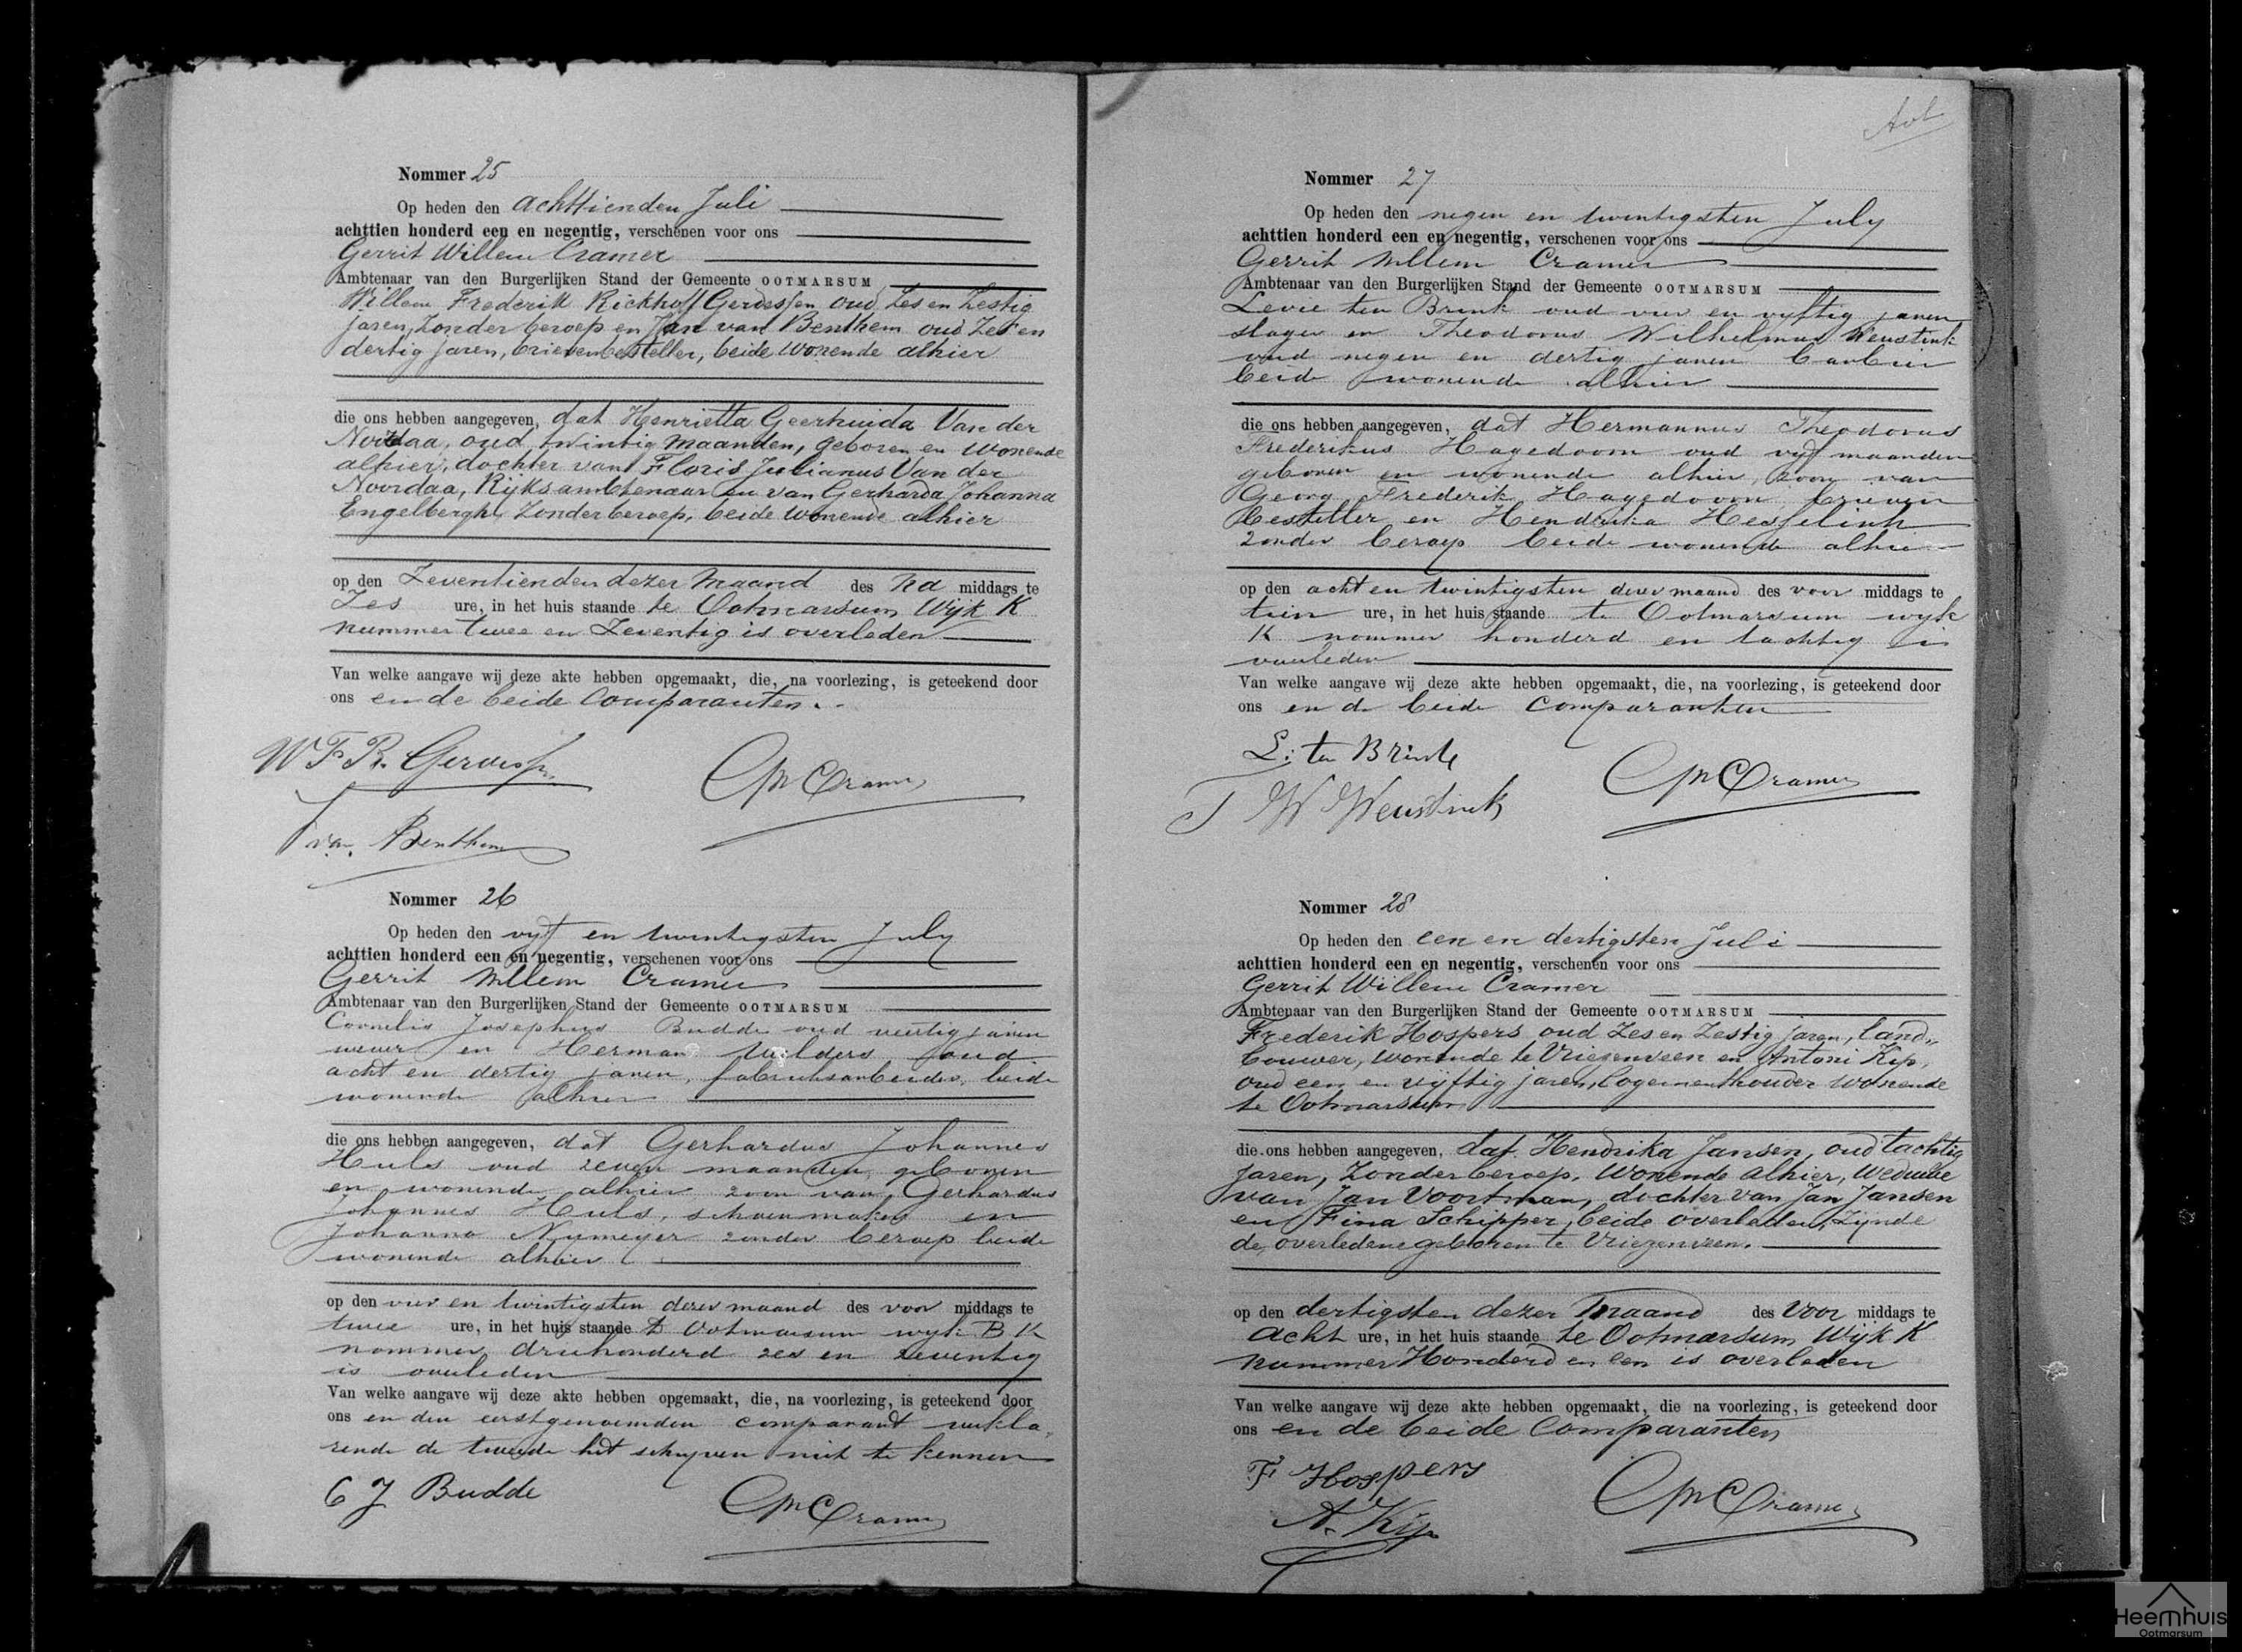 Nommer 25
Op heden den achttienden Juli
achttien honderd een en negentig, verschenen voor ons
Gerrit Willem Cramer
Ambtenaar van den Burgerlijken Stand der Gemeente OOTMARSUM
Willem Frederik Rickhoff Gerdessen oud Zes en Zestig
jaren, Zonder beroep en Jan van Benthem oud Zes en
dertig jaren, brievenbesteller, beide wonende alhier
die ons hebben aangegeven, dat Henrietta Geerhuida Van der
Noordaa, oud twintig maanden, geboren en wonende
alhier, dochter van Floris Julianus Van der
Noordaa, Rijksambtenaar en van Gerharda Johanna
Engelbergh, Zonder beroep, beide wonende alhier
op den Zeventienden dezer maand des na middags te
Zes ure, in het huis staande te Ootmarsum, Wijk K
nummer twee en Zeventig is overleden
Van welke aangave wij deze akte hebben opgemaakt, die, na voorlezing, is geteekend door
ons en de beide Comparanten.
W F R. Gerdessen
GW Cramer
J van Benthem
Nommer 26
Op heden den vijf en twintigsten July
achttien honderd een en negentig, verschenen voor ons
Gerrit Willem Cramer
Ambtenaar van den Burgerlijken Stand der Gemeente OOTMARSUM
Cornelis Josephus Budde oud veertig jaren
wever en Herman Mulders oud
acht en dertig jaren, fabrieksarbeider, beide
wonende alhier
die ons hebben aangegeven, dat Gerhardus Johannes
Huls oud zeven maanden, geboren
en wonende alhier zoon van Gerhardus
Johannes Huls, schoenmaker en
Johanna Nijmeijer zonder beroep beide
wonende alhier
op den vier en twintigsten dezer maand des voor middags te
twee ure, in het huis staande te Ootmarsum wijk B K
nommer driehonderd zes en zeventig
is overleden
Van welke aangave wij deze akte hebben opgemaakt, die, na voorlezing, is geteekend door
ons en den eerstgenoemden comparant verkla
rende de tweede het schrijven niet te kennen
C J Budde
GW Cramer
Avt
Nommer 27
Op heden den negen en twintigsten July
achttien honderd een en negentig, verschenen voor ons
Gerrit Willem Cramer
Ambtenaar van den Burgerlijken Stand der Gemeente OOTMARSUM
Levie ten Brink oud vier en vijftig jaren
slager en Theodorus Wilhelmus Weustink
oud negen en dertig jaren barbier
beide wonende alhier
die ons hebben aangegeven, dat Hermannus Theodorus
Frederikus Hagedoorn oud vijf maanden
geboren en wonende alhier, zoon van
Georg Frederik Hagedoorn brieven
besteller en Hendrika Hesselink
zonder beroep beide wonende alhier
op den acht en twintigsten dezer maand des voor middags te
tien ure, in het huis staande te Ootmarsum wijk
K nommer honderd en tachtig is
overleden
Van welke aangave wij deze akte hebben opgemaakt, die, na voorlezing, is geteekend door
ons en de beide Comparanten
L: ten Brink
GW Cramer
T W Weustink
Nommer 28
Op heden den een en dertigsten Juli
achttien honderd een en negentig, verschenen voor ons
Gerrit Willem Cramer
Ambtenaar van den Burgerlijken Stand der Gemeente OOTMARSUM
Frederik Hospers oud Zes en Zestig jaren, land„
bouwer, wonende te Vriezenveen en Antoni Kip,
oud een en vijftig jaren, logementhouder wonende
te Ootmarsum
die ons hebben aangegeven, dat Hendrika Jansen, oud tachtig
jaren, Zonder beroep, wonende alhier, weduwe
van Jan Voortman, dochter van Jan Jansen
en Fina Schipper, beide overleden, Zijnde
de overledene geboren te Vriezenveen.
op den dertigsten dezer maand des voor middags te
acht ure, in het huis staande te Ootmarsum, Wijk K
nummer Honderd en een is overleden
Van welke aangave wij deze akte hebben opgemaakt, die na voorlezing, is geteekend door
ons en de beide Comparanten
F Hospers
GW Cramer
A. Kip
Heemhuis
Ootmarsum